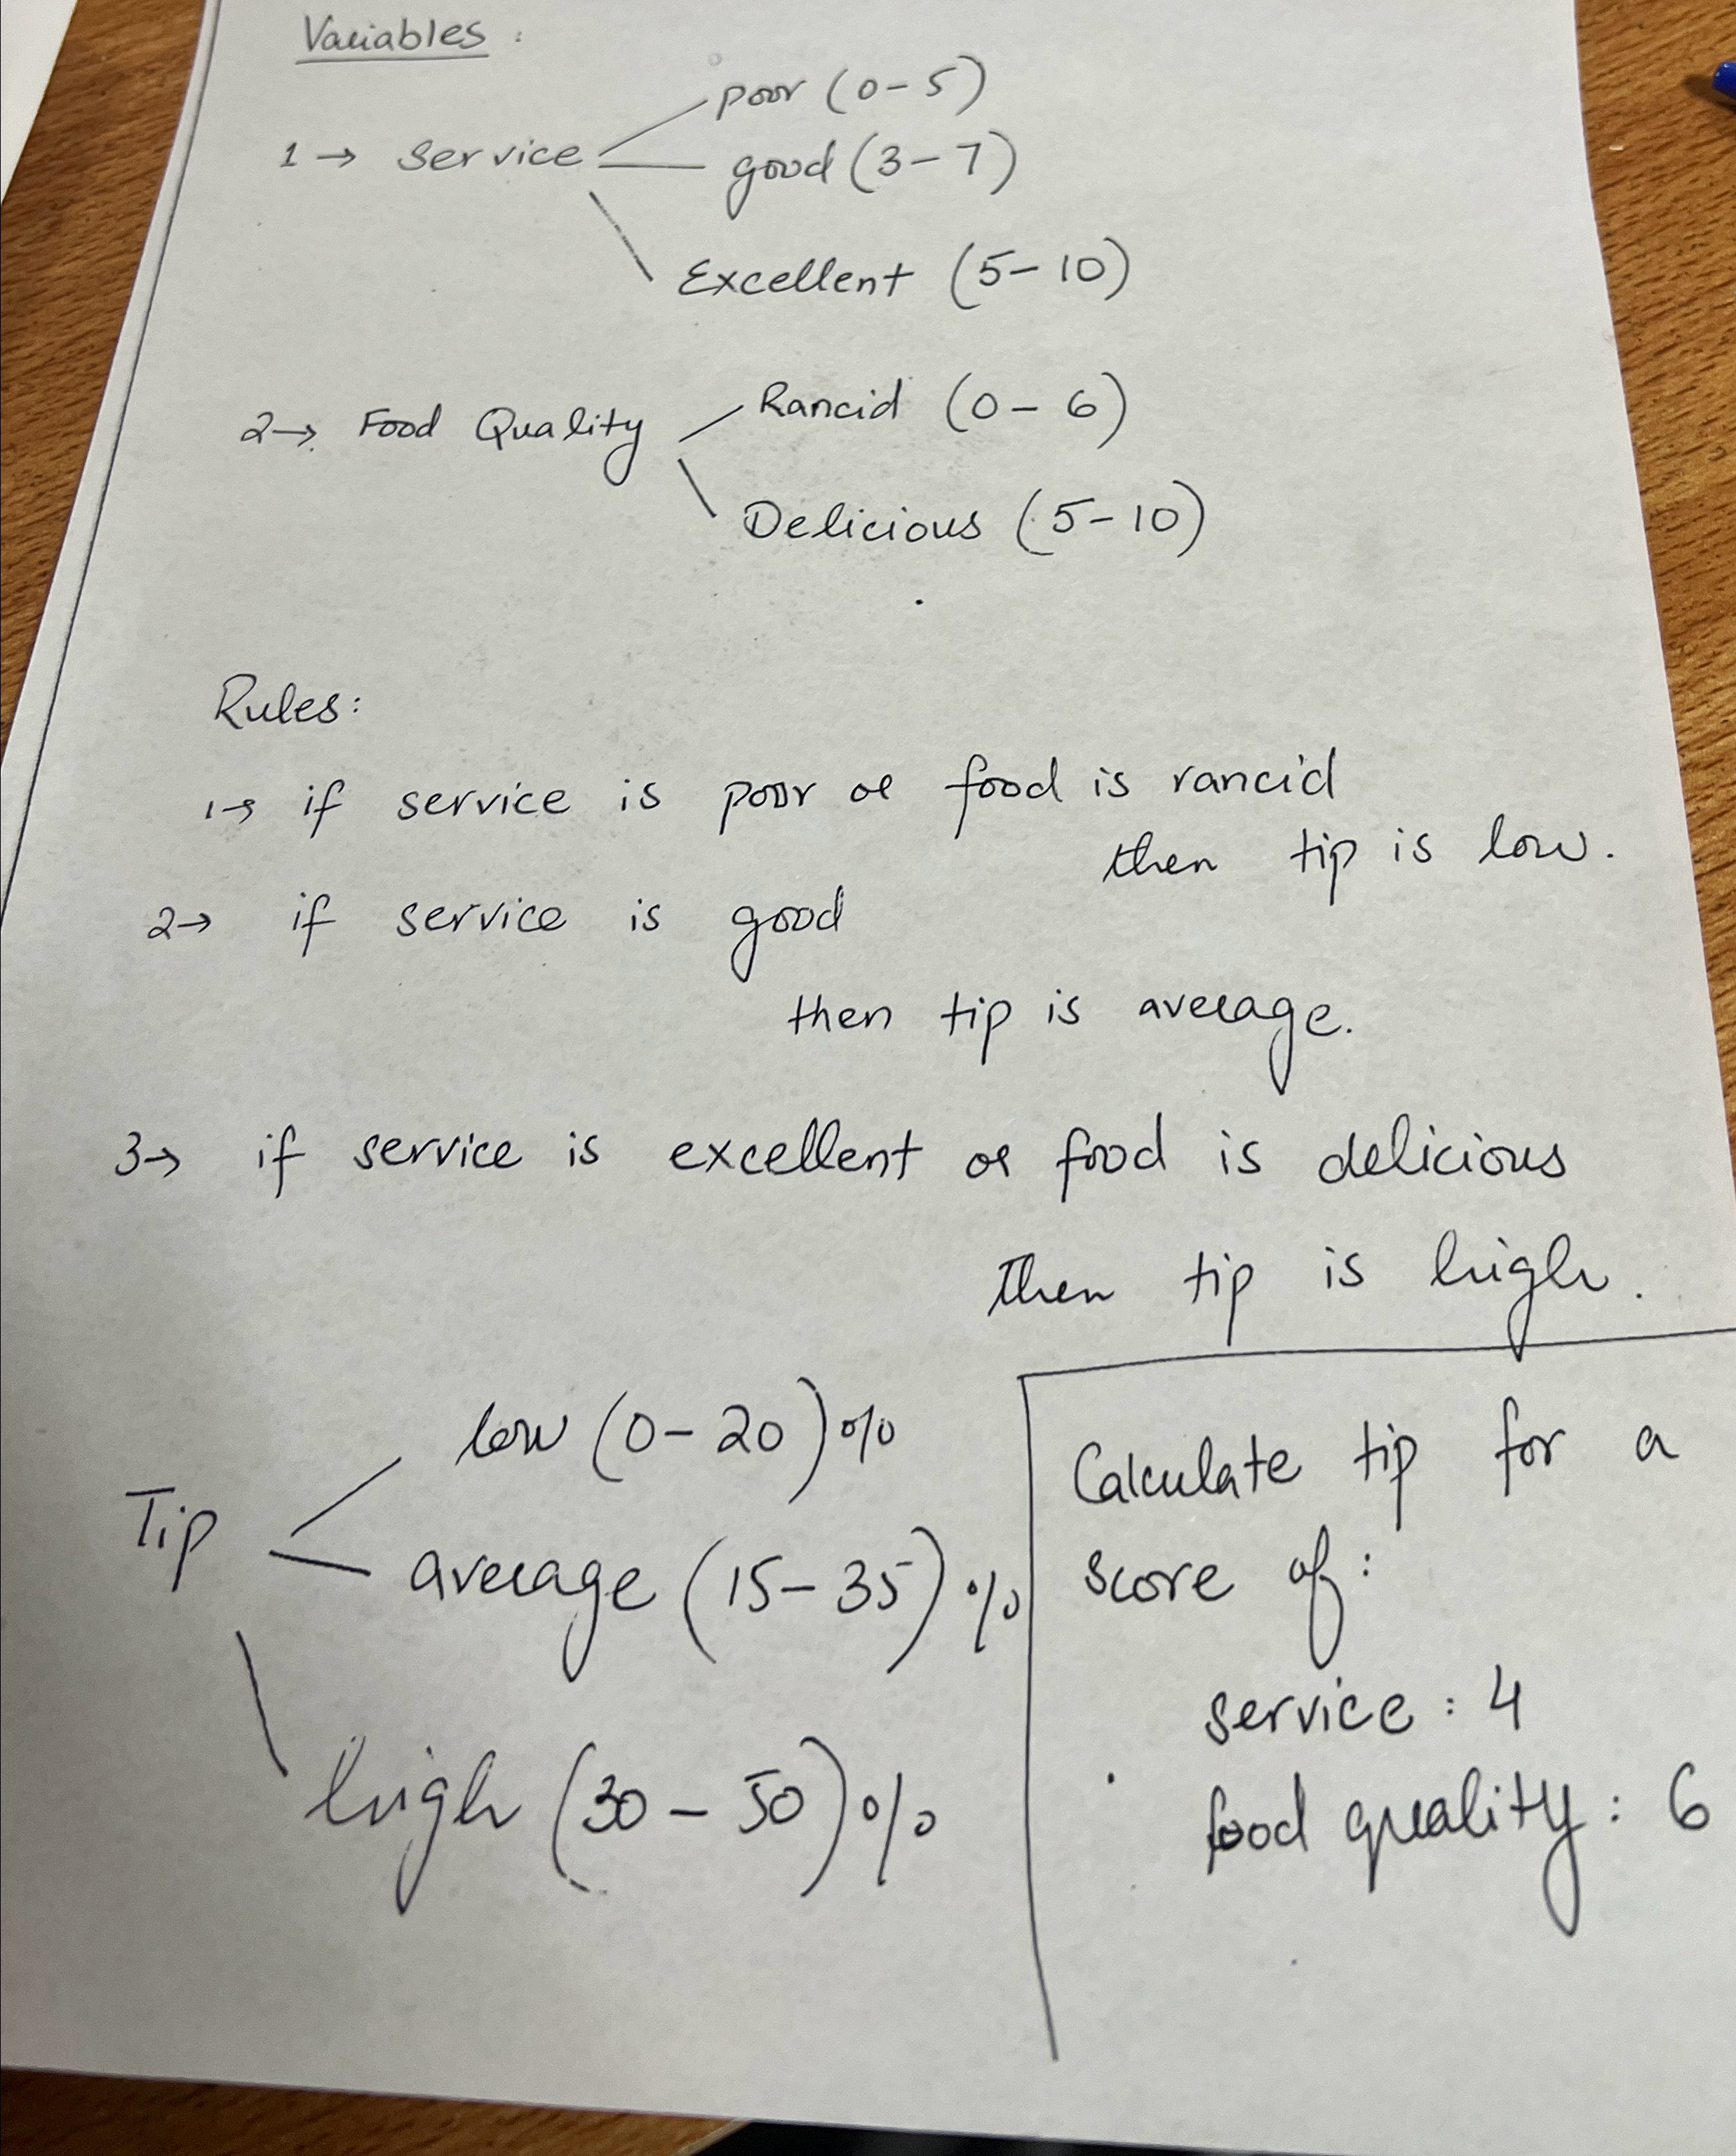 Variables :
poor (0-5)
1→ Service
good (3-7)
Excellent (5-10)
Rancid (0-6)
2→ Food Quality
Delicious (5-10)
Rules:
1→ if service is poor or food is rancid
then tip is low.
2→ if service is good
then tip is average.
3→ if service is excellent or food is delicious
Then tip is high.
low (0-20)%
Tip
average (15-35)%
high (30-50)%
Calculate tip for a
score of:
service : 4
food quality : 6